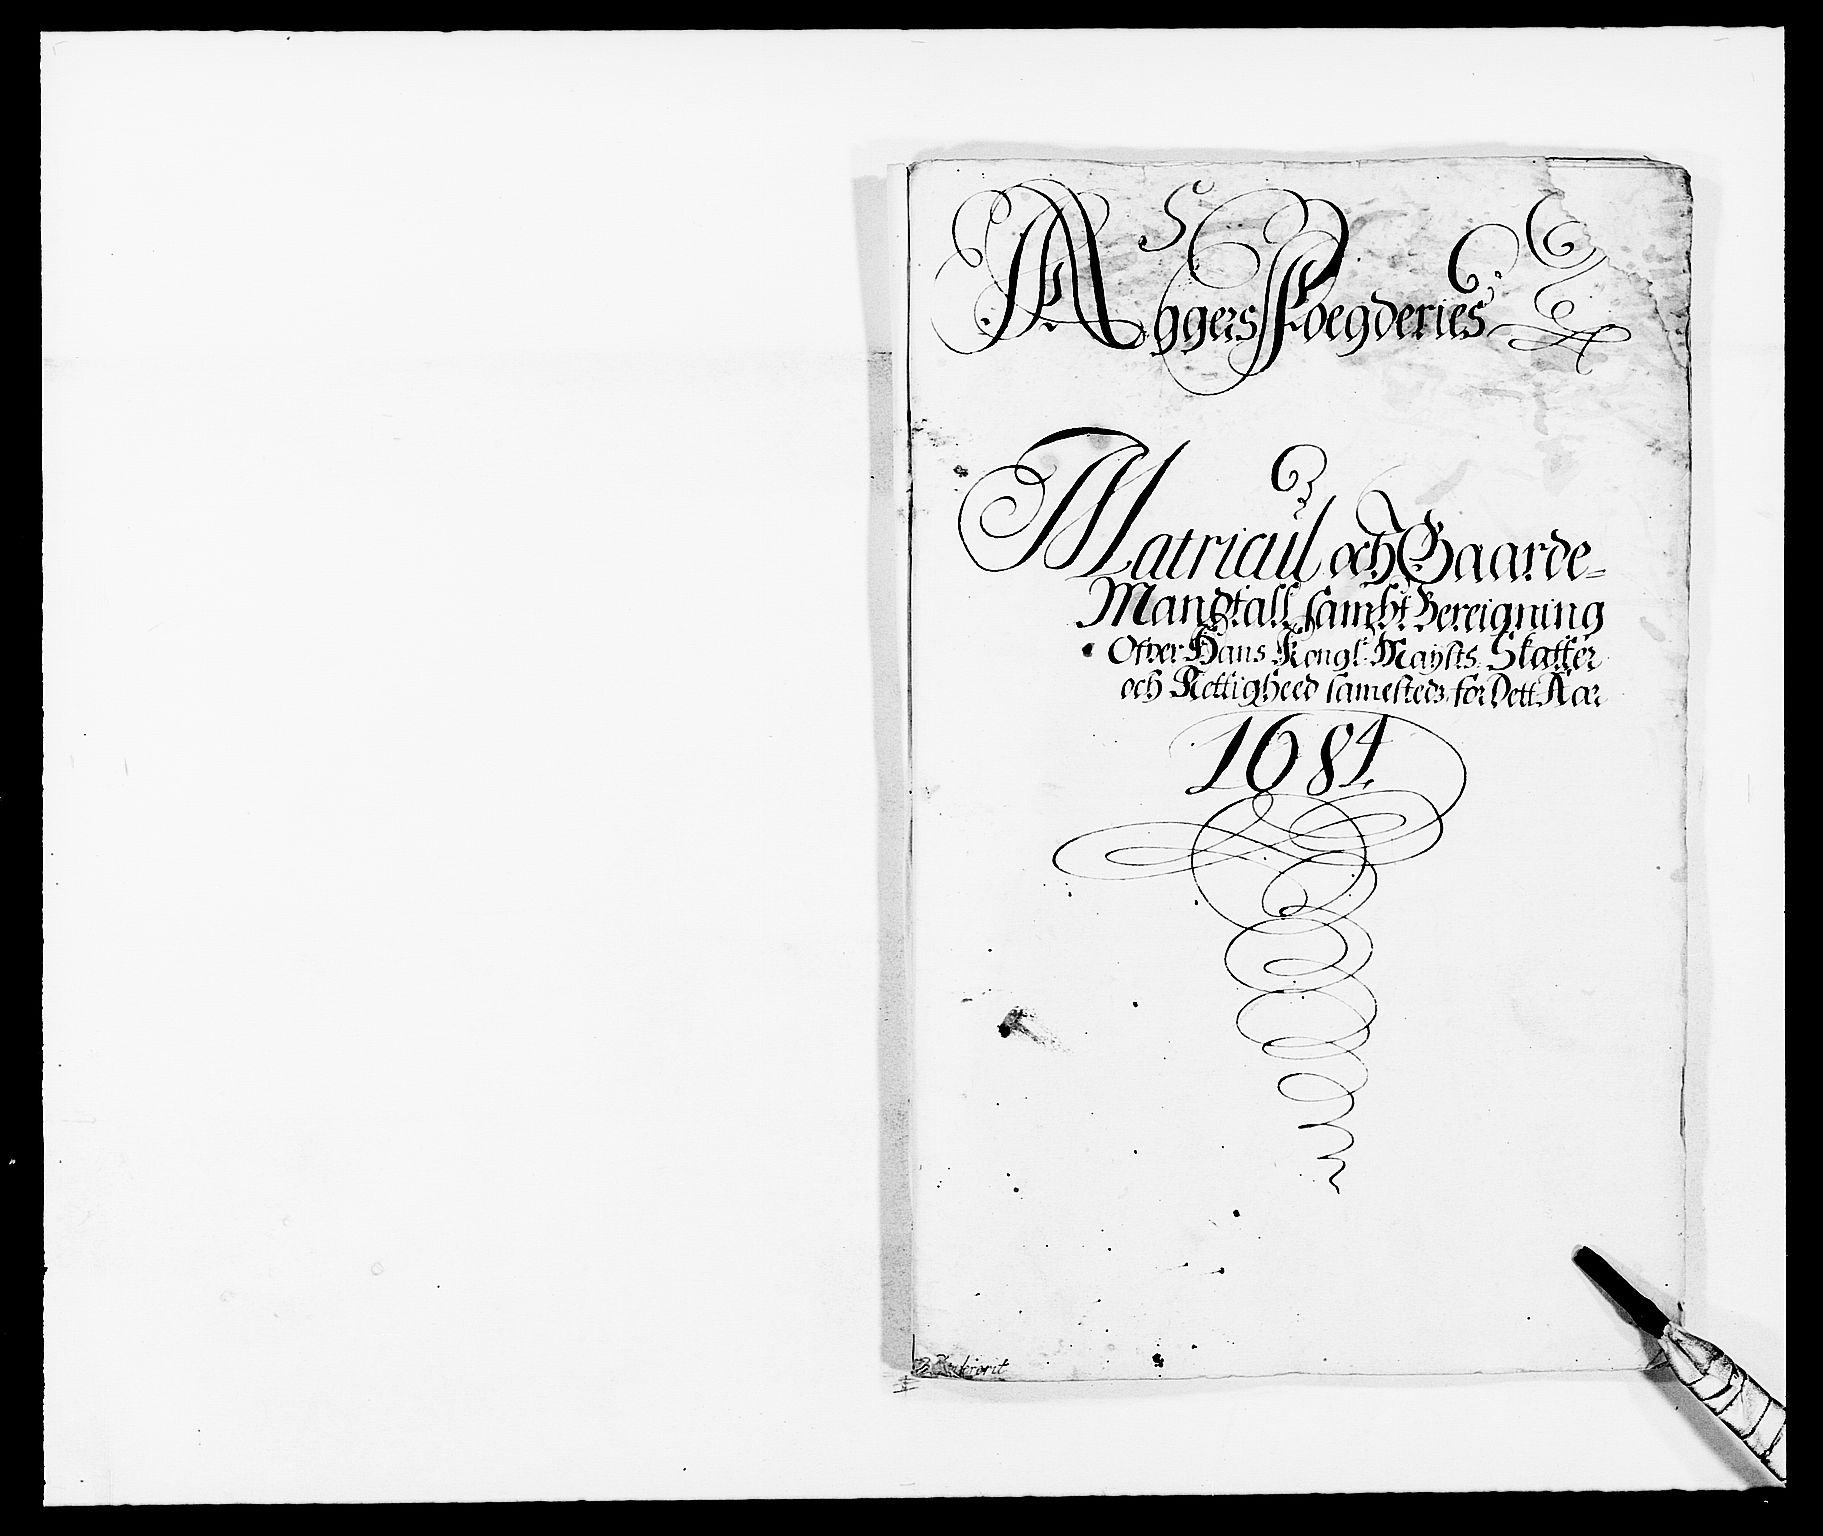 Aggers Foegderies
Matricul och Gaarde=
Mandtall sambt Bereigning
Ofver Hans Kongl: Mayſts. Skatter
och Rettigheed sameſteds, for Dett Aar
1684